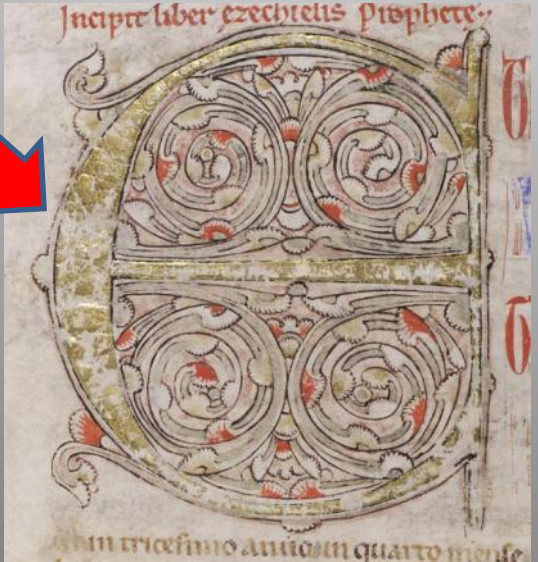 Incipit liber ezechielis prophete
E
in tricesimo anno in quarto mense